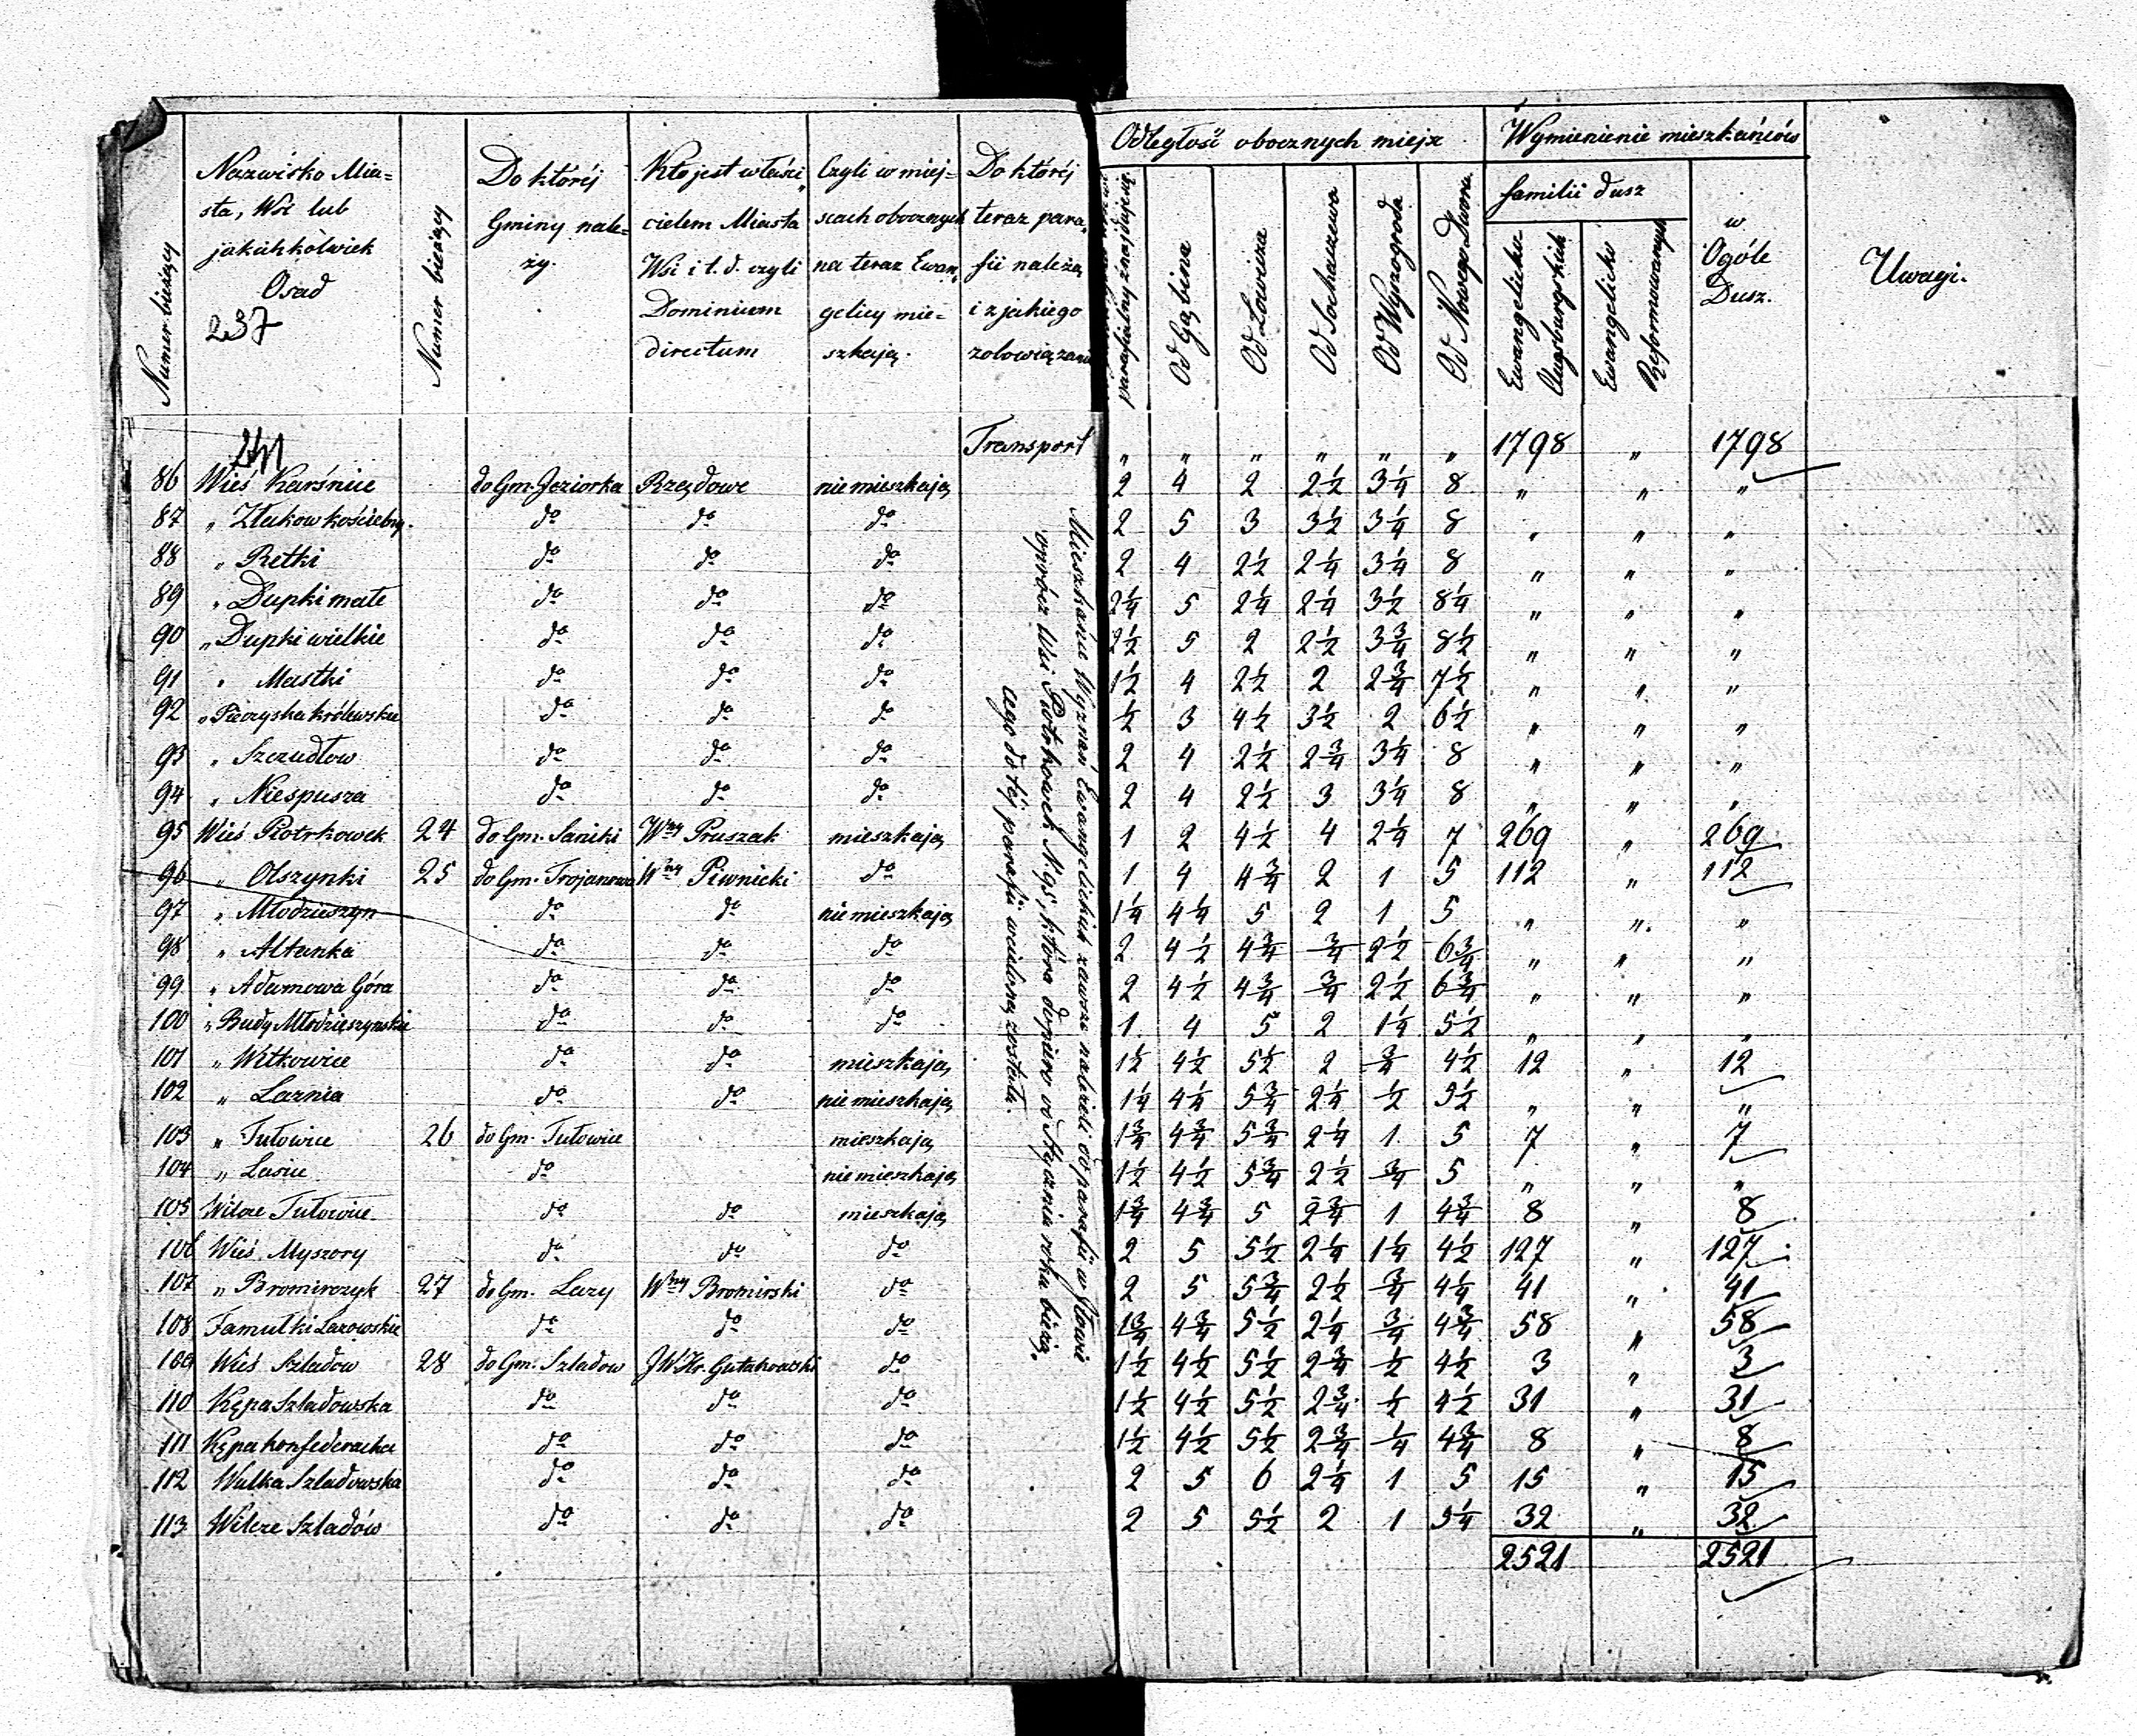 Numer bieżący
Nazwisko Mia=
sta, Wsi lub
jakichkolwiek
Osad
237
Numer bieżący
Do którėj
Gminy nale=
ży.
Kto jest właści„
cielem Miasta
Wsi i t. d. czyli
Dominium
directum
Czyli w miej=
scach obocznych
na teraz Ewan„
gelicy mie=
szkają.
Do którėj
teraz para„
fii należą
i z jakiego
zobowiązania
Odległość obocznych miejsc
parafialny znajdujący
Od Gąbina
Od Łowicza
Od Sochaczewa
Od Wyszogroda
Od Nowego Dworu
Wymienienie mieszkańców
familii dusz
Ewangelicko
Augsburgskich
Ewangelicko
Reformowanych
w
Ogóle
Dusz.
Uwagi.
Transport „ „ „ „ „ „ 1798 „ 1798
86 Wieś Karśnice do Gm. Jeziorka Rządowe nie mieszkają 2 4 2 2½ 3¼ 8 „ „ „
87 „ Złakow kościelny do do do 2 5 3 3½ 3¼ 8 „ „ „
88 „ Retki do do do 2 4 2½ 2¼ 3¼ 8 „ „ „
89 „ Dupki małe do do do 2¼ 5 2¼ 2¼ 3½ 8¼ „ „ „
90 „ Dupki wielkie do do do 2½ 5 2 2½ 3¾ 8½ „ „ „
91 „ Mastki do do do 1½ 4 2½ 2 2¾ 7½ „ „ „
92 „ Pieczyska królewskie do do do ½ 3 4½ 3½ 2 6½ „ „ „
93 „ Szczudłow do do do 2 4 2½ 2¾ 3¼ 8 „ „ „
94 „ Niespusza do do do 2 4 2½ 3 3¼ 8 „ „ „
95 Wieś Piotrkowek 24 do Gm. Saniki Wny Pruszak mieszkają 1 2 4½ 4 2¼ 7 269 „ 269
96 „ Olszynki 25 do Gm. Trojanowa Wny Piwnicki do 1 4 4¾ 2 1 5 112 „ 112
97 „ Młodzieszyn do do nie mieszkają 1¼ 4¼ 5 2 1 5 „ „ „
98 „ Altanka do do do 2 4½ 4¾ ¾ 2½ 6¾ „ „ „
99 „ Adamowa Góra do do do 2 4½ 4¾ ¾ 2½ 6¾ „ „ „
100 „ Budy Młodzieszyńskie do do do 1 4 5 2 1¼ 5½ „ „ „
101 „ Witkowice do do mieszkają 1½ 4½ 5½ 2 ¾ 4½ 12 „ 12
102 „ Laznia do do nie mieszkają 1¼ 4¼ 5¾ 2¼ ½ 5½ „ „ „
103 „ Tułowice 26 do Gm. Tułowice mieszkają 1¾ 4¾ 5¾ 2¼ 1 5 7 „ 7
104 „ Lasice do nie mieszkają 1½ 4½ 5¾ 2½ ¾ 5 „ „ „
105 Wilcze Tułowice do do mieszkają 1¾ 4¾ 5 2¾ 1 4¾ 8 „ 8
106 Wieś Myszory do do do 2 5 5½ 2¼ 1¼ 4½ 127 „ 127
107 „ Bromierzyk 27 do Gm. Lazy Wny Bromirski do 2 5 5¾ 2½ ¾ 4¼ 41 „ 41
108 Famułki Lazowskie do do do 1¾ 4¾ 5½ 2¼ ¾ 4¾ 58 „ 58
109 Wieś Szladow 28 do Gm. Szladow JW Hr. Gutakowski do 1½ 4½ 5½ 2¾ ½ 4½ 3 „ 3
110 Kępa Szladowska do do do 1½ 4½ 5½ 2¾ ½ 4½ 31 „ 31
111 Kępa konfederacka do do do 1½ 4½ 5½ 2¾ ¼ 4¾ 8 „ 8
112 Wulka Szladowska do do do 2 5 6 2¼ 1 5 15 „ 15
113 Wilcze Szladów do do do 2 5 5½ 2 1 5¼ 32 „ 32
2521 2521
Mieszkańce Wyznań Ewangelickich zawsze należeli do parafii w Iłowie
oprócz Wsi Piotrkowek N. 95, która dopiero od Stycznia roku bieżą„
cego do tėj parafii wcieloną została.